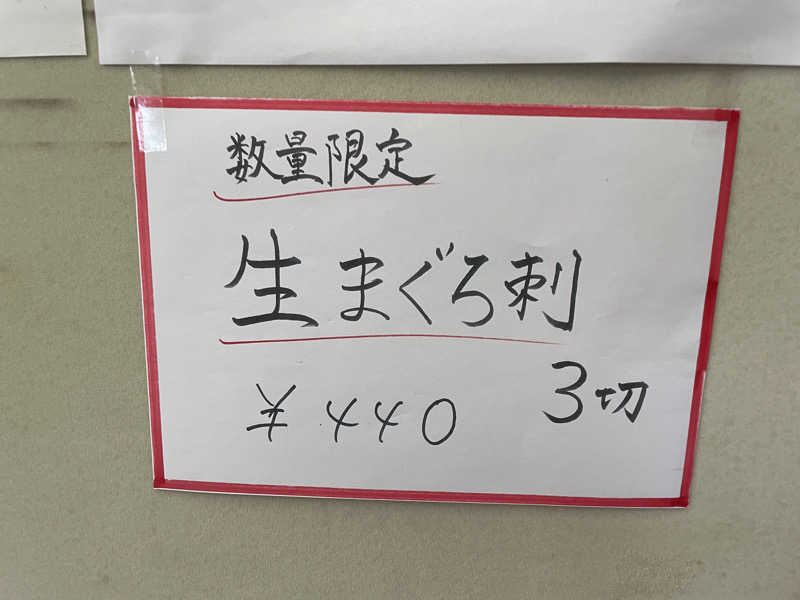 数量限定
生まぐろ刺
3切
¥440